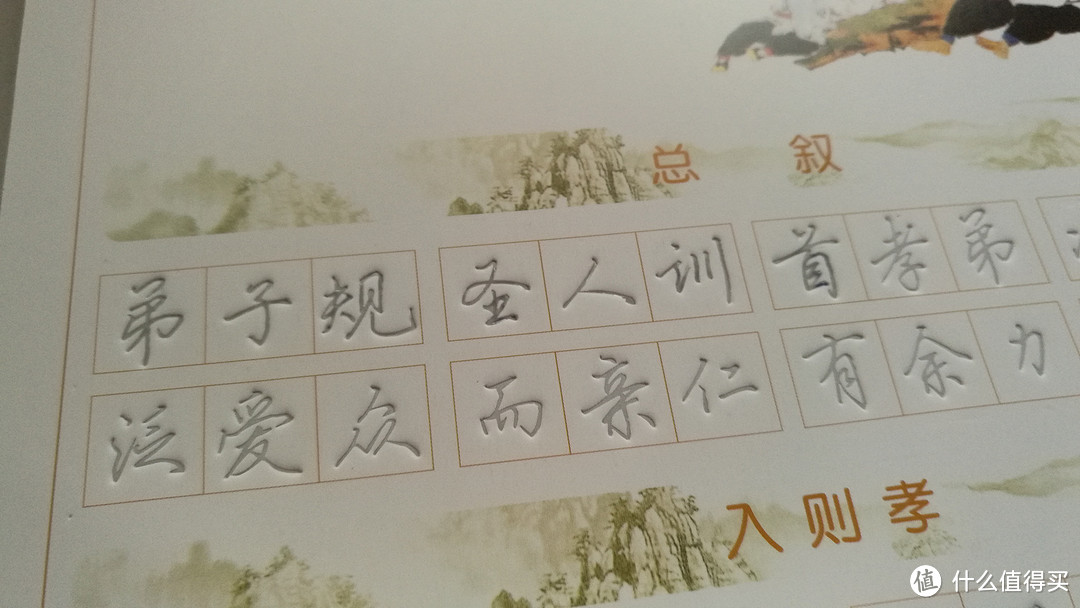 总 叙
弟子规 圣人训 首孝弟
泛爱众 而亲仁 有余力
入则孝
值 什么值得买